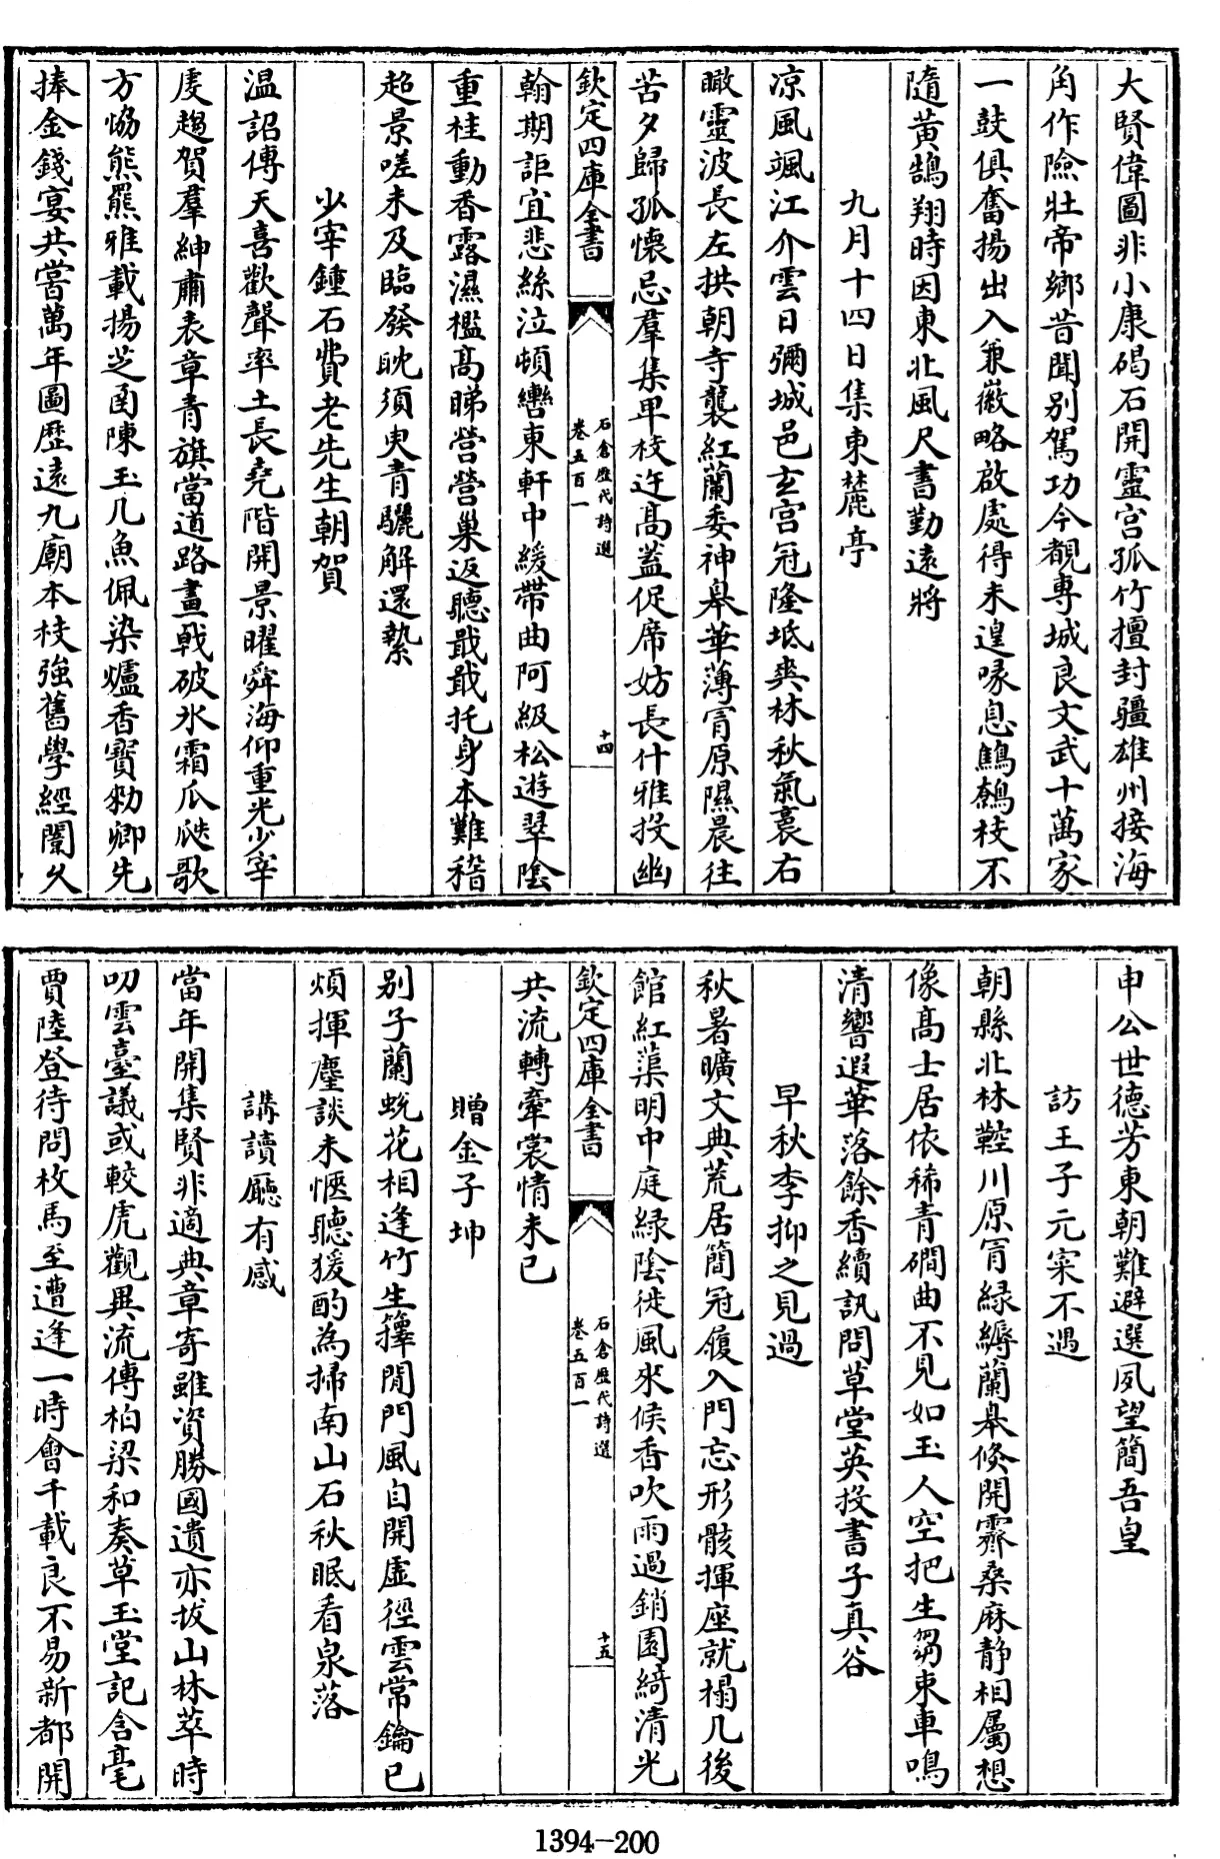 大賢偉圖非小康碣石開靈宫孤竹擅封疆雄州接海
角作險壯帝鄉昔聞别駕功今覩專城良文武十萬家
一鼓俱奮揚出入兼徽略啟處得未遑喙息鷦鷯枝不
隨黄鵠翔時因東北風尺書勤遠將
九月十四日集東麓亭
凉風颯江介雲日彌城邑玄宫冠隆坻爽林秋氣裛右
瞰靈波長左拱朝寺襲紅蘭委神皋華薄罥原隰晨往
苦夕歸孤懷忌羣集卑枝迕高蓋促席妨長什雅投幽
欽定四庫全書
石倉歴代詩選
卷五百一
十四
翰期詎宜悲絲泣頓轡東軒中緩帶曲阿級松遊翠陰
重桂動香露濕檻高睇營營巢返聽戢戢托身本難稽
超景嗟未及臨發眈須臾青驪解還縶
少宰鍾石費老先生朝賀
温詔傳天喜歡聲率土長堯階開景曜舜海仰重光少宰
虔趨賀羣紳肅表章青旗當道路畫戟破氷霜瓜瓞歌
方恊熊羆雅載揚芝函陳玉几魚佩染爐香寳勑卿先
捧金錢宴共嘗萬年圖歴遠九廟本枝強舊學經闈久
申公世德芳東朝難避選夙望簡吾皇
訪王子元寀不遇
朝縣北林鞚川原罥緑縟蘭皋倏開霽桑麻静相屬想
像高士居依稀青磵曲不見如玉人空把生芻東車鳴
清響遐華落餘香續訊問草堂英投書子真谷
早秋李抑之見過
秋暑曠文典荒居簡冠履入門忘形骸揮座就榻几後
館紅蕖明中庭緑陰徙風來候香吹雨過銷園綺清光
欽定四庫全書
石倉歴代詩選
卷五百一
十五
共流轉牽裳情未已
贈金子坤
别子蘭蛻花相逢竹生籜閒門風自開虚徑雲常鑰已
煩揮麈談未愜聽猨酌為掃南山石秋眠看泉落
講讀廳有感
當年開集賢非適典章寄雖資勝國遺亦拔山林萃時
叨雲臺議或較虎觀異流傳柏梁和奏草玉堂記含毫
賈陸登待問枚馬至遭逢一時會千載良不易新都開
1394-200